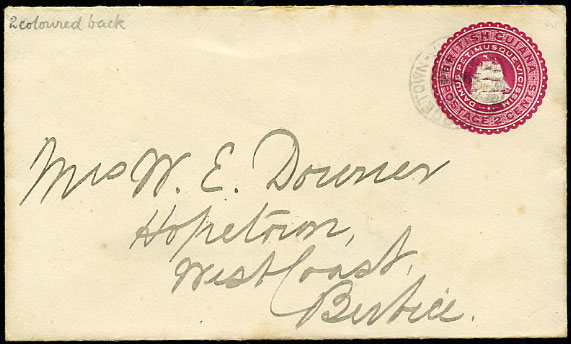 2 coloured back
BRITISH GUIANA
DAMUS PETIMUSQUE VICISSIM
POSTAGE 2 CENTS
Mrs W. E. Downer
Hopetown,
West Coast,
Berbice.